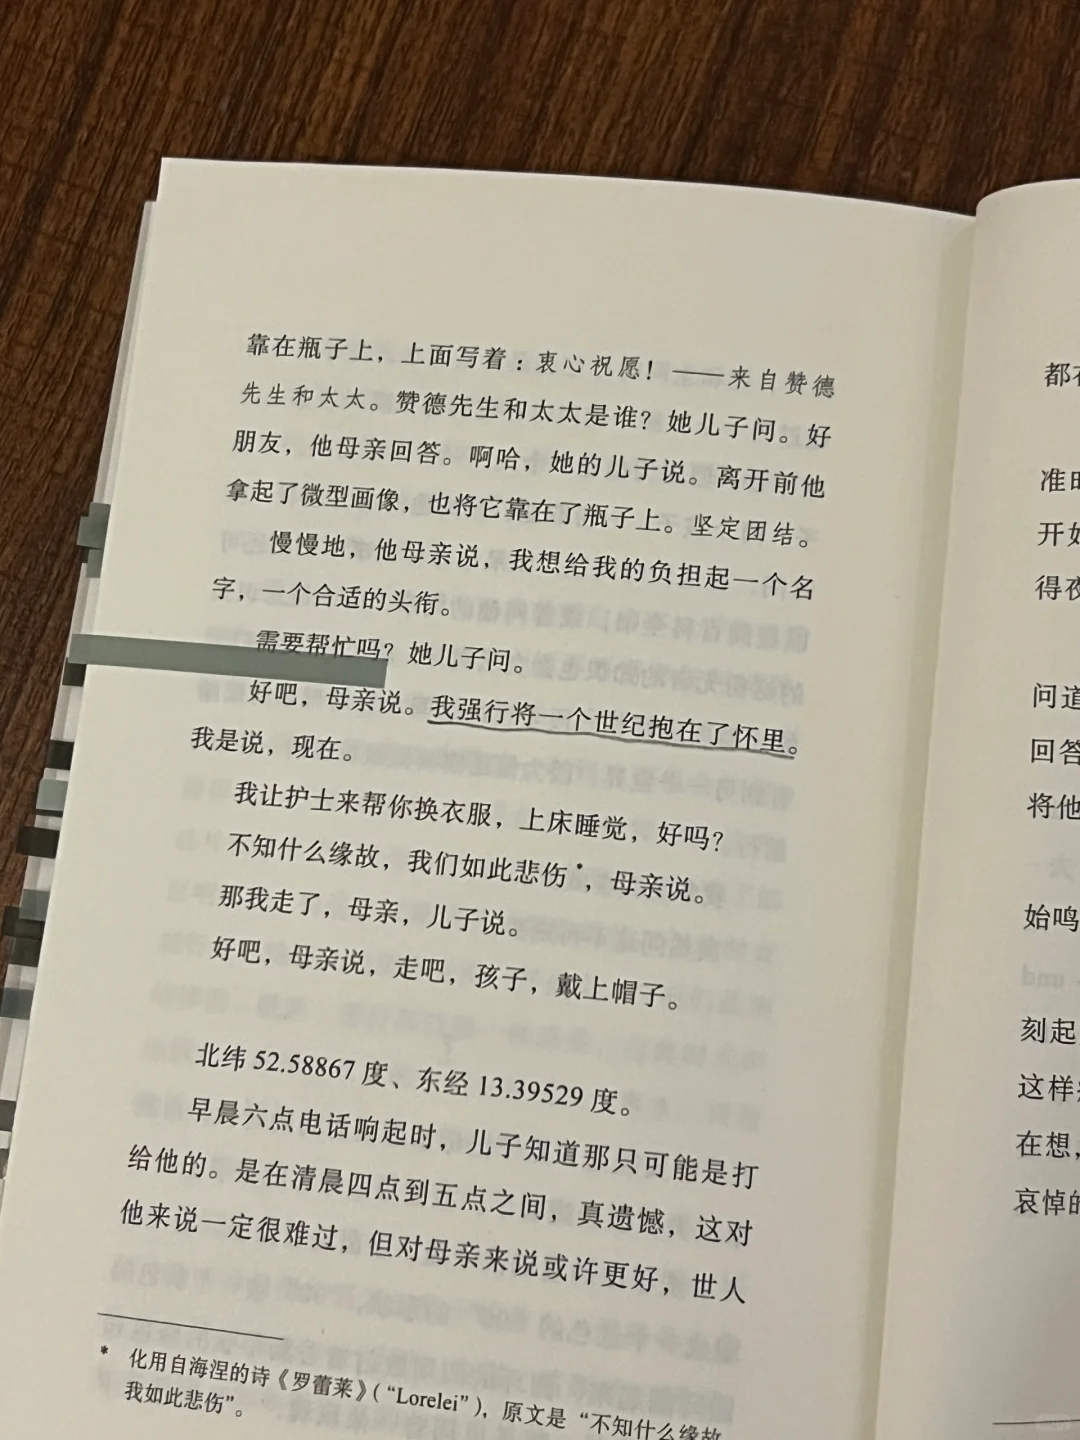 靠在瓶子上，上面写着：衷心祝愿！——来自赞德
先生和太太。赞德先生和太太是谁？她儿子问。好
朋友，他母亲回答。啊哈，她的儿子说。离开前他
拿起了微型画像，也将它靠在了瓶子上。坚定团结。
慢慢地，他母亲说，我想给我的负担起一个名
字，一个合适的头衔。
需要帮忙吗？她儿子问。
好吧，母亲说。我强行将一个世纪抱在了怀里。
我是说，现在。
我让护士来帮你换衣服，上床睡觉，好吗？
不知什么缘故，我们如此悲伤*，母亲说。
那我走了，母亲，儿子说。
好吧，母亲说，走吧，孩子，戴上帽子。
北纬 52.58867 度、东经 13.39529 度。
早晨六点电话响起时，儿子知道那只可能是打
给他的。是在清晨四点到五点之间，真遗憾，这对
他来说一定很难过，但对母亲来说或许更好，世人
* 化用自海涅的诗《罗蕾莱》（“Lorelei”），原文是“不知什么缘故
我如此悲伤”。
都在
准时
开始
得夜
问道
回答
将他
始鸣
刻起
这样
在想，
哀悼的